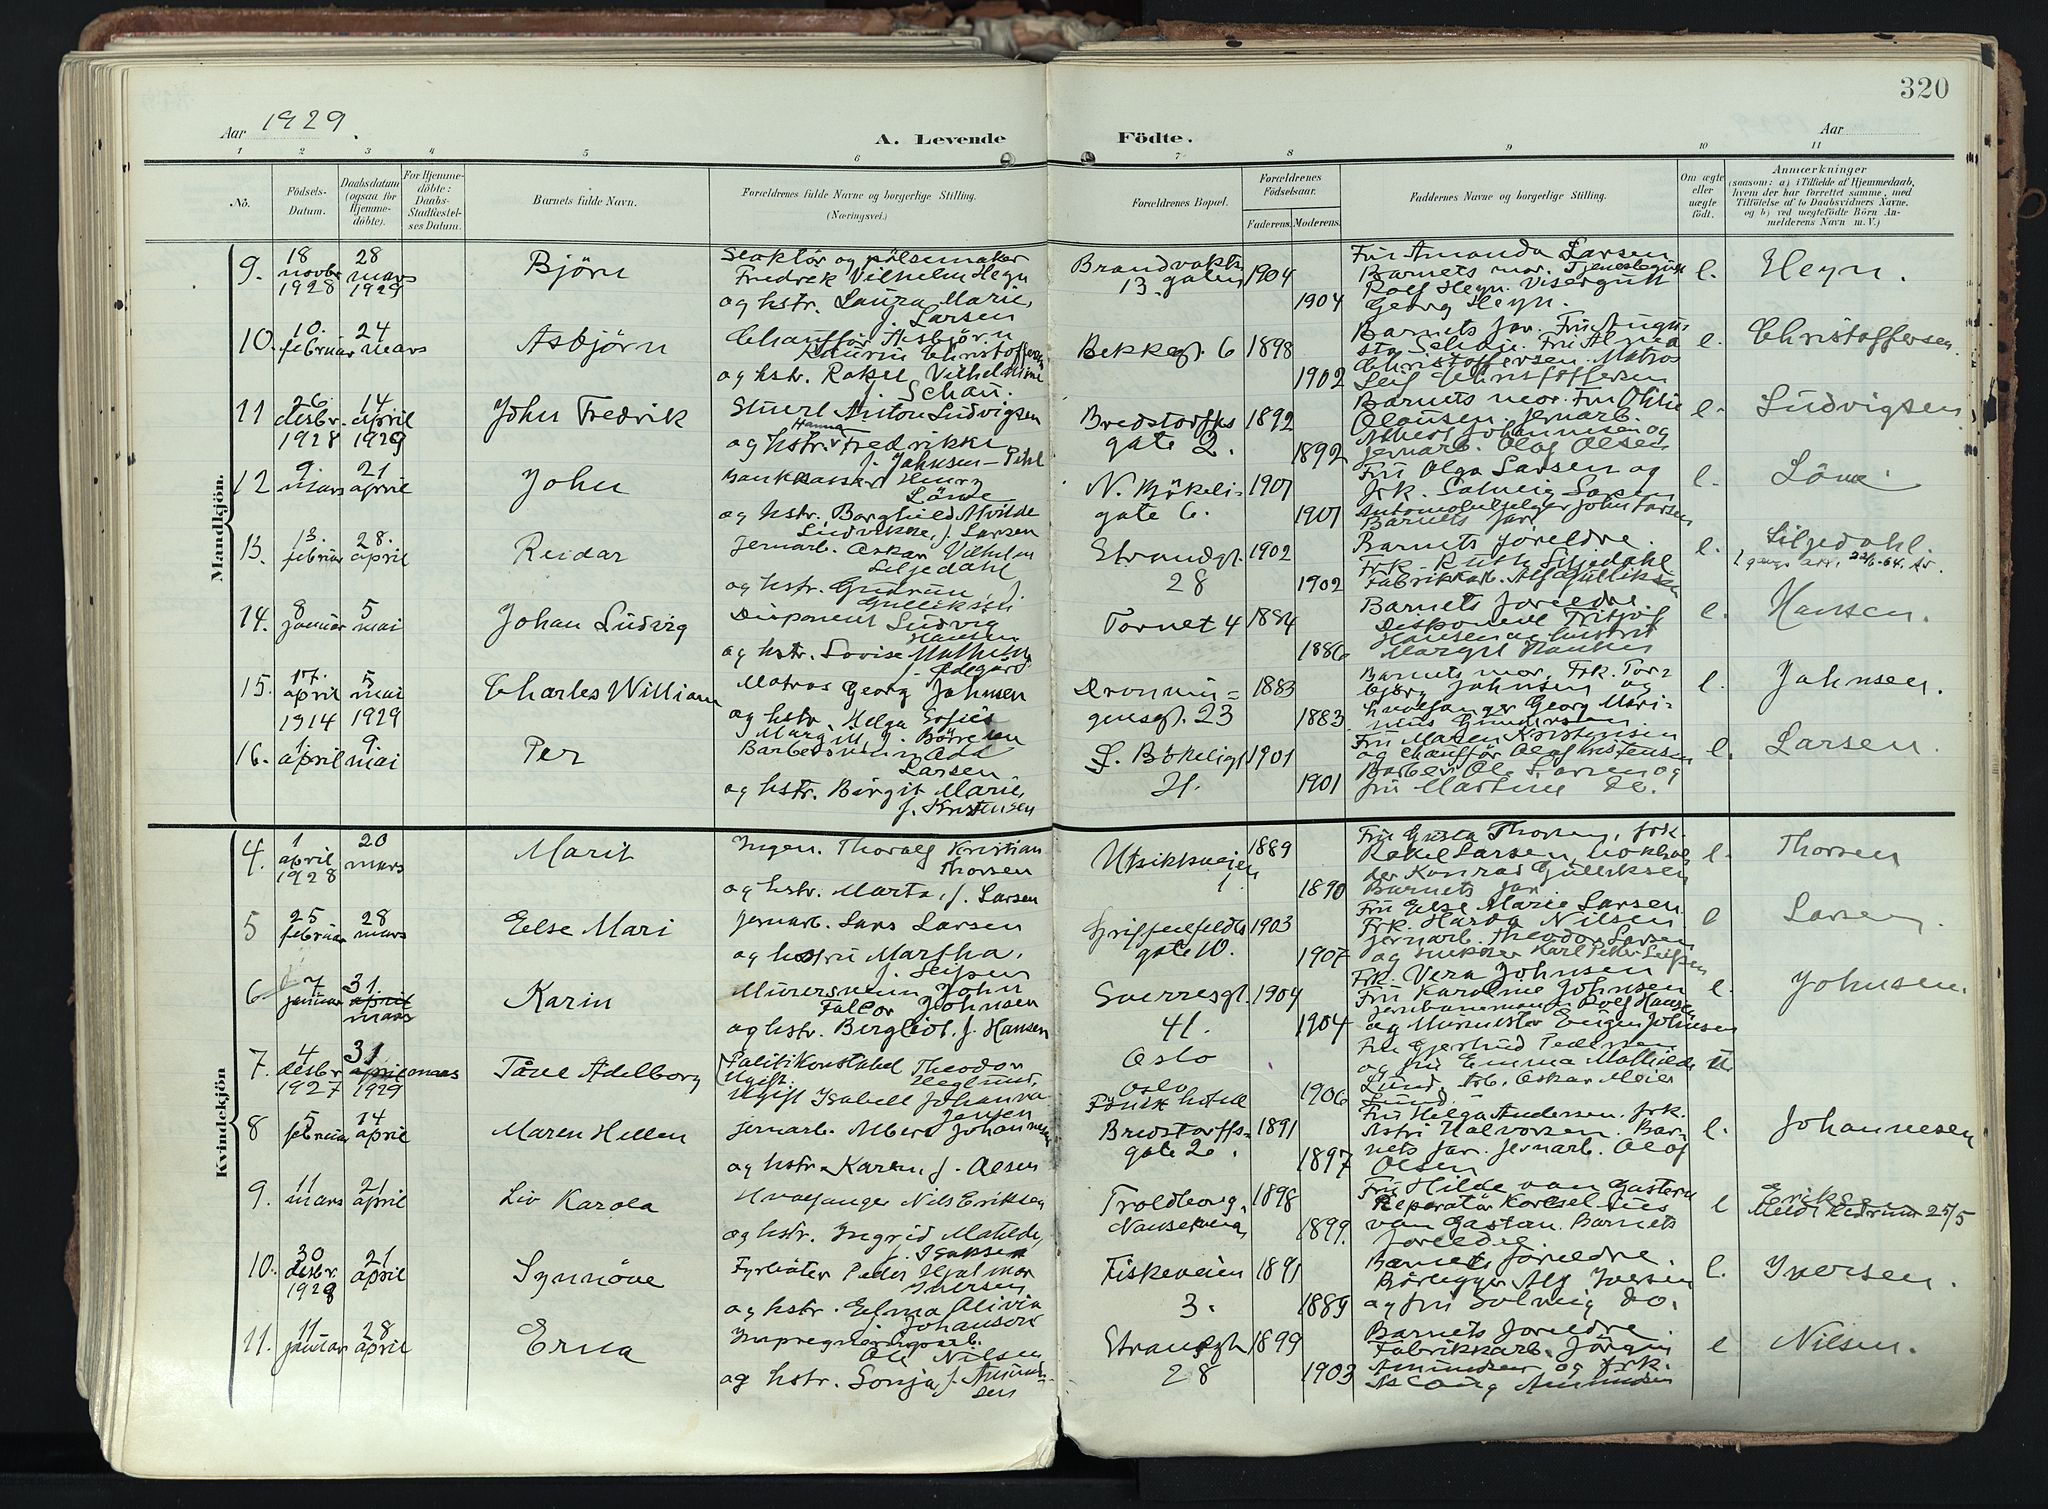 320
Aar 1929.
A. Levende Födte.
Aar
1 2 3 4 5 6 7 8 9 10 11
No. Födsels-Datum. Daabsdatum (ogsaa for Hjemme-döbte). For Hjemme-döbte: Daabs-Stadfæstel-ses Datum. Barnets fulde Navn. Forældrenes fulde Navne og borgerlige Stilling. (Næringsvei.) Forældrenes Bopæl. Forældrenes Födselsaar. Faderens. Moderens. Faddernes Navne og borgerlige Stilling. Om ægte eller uægte födt. Anmærkninger (saasom: a) i Tilfælde af Hjemmedaab, hvem der har forrettet samme, med Tilföielse af to Daabsvidners Navne. og b) ved uægtefödte Börn An-melderens Navn m. V.)
Mandkjön.
9. 18 novbr 1928 28 mars 1929 Björn
og pölsemaker
Fredrik Vilhelm Heyn
og hstr. Laura Marie, f. Larsen
Brandvakts 13. gaten 1904 1904
Fru Amanda Larsen
Barnets mor.
Rolf Heyn. Visergutt
Georg Heyn.
l. Heyn.
10. 10. februar 24 mars Asbjörn
Chaufför Asbjörn
Christoffersen
og hstr. Rakel Vilhelmine f. Schau.
Bekkegt. 6 1898 1902
Barnets far. Fru Augusta
Christoffersen. Matros
Leif Christoffersen
l. Christoffersen.
11 26 desbr. 1928 14 april 1929 John Fredrik
Stuert Anton Ludvigsen
og hstr. Hanna Fredrikke
f. Johnsen - Pihl
Bredstorffs gate 2. 1892 1892
Barnets mor. Fru
Olausen. Jernarb.
Albert Johannesen og
jernarb. Olaf Olsen
l. Ludvigsen
12 9 mars 21 april John
Bankkasser Henry
Löwe
og hstr. Borghild Alvilde
Ludvikke, f. Larsen
N. Bökeli-gate 6. 1901 1901
Fru Olga Larsen og
frk. Solveig Larsen
Automobilselger John Larsen
Barnets far.
l. Löwe
13. 13. februar 28. april Reidar
Jernarb. Oskar Vilhelm
Liljedahl
og hstr. Gudrun, f.
Gulliksen
Strandgt. 28 1902 1902
Barnets foreldre.
Frk. Ruth Liljedahl
Fabrikkarb. Alf Gulliksen
l. Liljedahl.
14. 8 januar 5 mai Johan Ludvig
Disponent Ludvig
Hansen
og hstr. Lovise Mathilde
f. Ödegård
Tornet 4 1884 1886
Barnets foreldre.
Disponent Fritjof
Hansen og hustru
Margit Hansen
l. Hansen.
15. 17. april 1914 5 mai 1929 Charles William
Matros Georg Johnsen
og hstr. Helga Sofie
Margitt f. Börresen
Dronnin=gensgt. 23 1883 1883
Barnets mor. Frk. Tor=
bjørg Johnsen og
hvalfanger Georg Mari-
nius Gundersen.
l. Johnsen.
16. 1 april 9 mai Per
Barbersvenn
Larsen
og hstr. Birgit Marie,
f. Kristensen
S. Bökeligt. 21. 1901 1901
Fru Maren Kristensen
og chauffør Olaf Kristensen
Barber Ole Larsen og
fru Martine do.
l. Larsen.
Kvindekjön
4. 1 april 1928 20 mars Marit
Ingen. Thoralf Kristian
Thorsen
og hstr. Marta, f. Larsen
Utsiktsveien 1. 1889 1890
Fru Gusta Thorsen, frk.
Rakel Larsen, bokhol-
der Konrad Gulliksen
Barnets far.
l. Thorsen
5 25 februar 28 mars Else Mari
Jernarb. Lars Larsen
og hustru Martha,
f. Seipen
Griffenfeldts gate 10. 1903 1907
Fru Else Marie Larsen
Frk. Harda Nilsen
Jernarb. Theodor Larsen
og snekker Karl Peter Seipen
l Larsen
6 7 januar 31. april mars Karin
Murersvenn John
Johnsen
og hstr. Bergliot, f. Hansen
Sverresgt. 41. 1904 1904
Frk. Vera Johnsen
Fru Karoline Johnsen
Rolf Hansen
og Murmester Eugen Johnsen
l. Johnsen.
7. 4 desbr 1927 31 april mars 1929 Tove Adelborg
Politikonstabel Theodor
Ugift. Heglund,
Ugift Isabell Johanna
Jensen
Oslo
Oslo
Fönix hotell 1906
Fru Gjertrud Pedersen
og fru Emma Mathilde
Lund. Arb. Oskar Meier
Lund.
u
8 5 februar 14 april Maren Hellen
Jernarb. Albert Johannesen
og hstr. Karen, f. Olsen
Bredstorffs-gate 2. 1891 1897
Fru Helga Andersen. frk.
Astri Halvorsen. Bar-
nets far. Jernarb. Olaf
Olsen
l. Johannesen
9. 11 mars 21 april Liv Karola
Hvalfanger Nils Eriksen
og hstr. Ingrid Matilde,
f. Isaksen
Troldborg, Nanseveien 1898 1899.
Fru Hilde van Gasteren
Reparatör
van Gastern. Barnets
foreldre.
l Eriksen 25/5
10. 30 desbr. 1928 21 april Synnöve
Fyrböter Peder Hjalmar
Iversen
og hstr. Elma Olivia
f. Johansen
Fiskeveien 3. 1891 1889
Barnets foreldre.
Rörlegger Alf Iversen
og fru Solveig do.
l. Iversen.
11. 11 januar 28 april Erna
Ole Nilsen
og hstr. Sonja f. Amund-
sen
Strandgt. 28 1899 1903
Barnets foreldre.
Fabrikkarb. Jörgen
Amundsen og frk.
Aslaug Amundsen
l Nilsen.